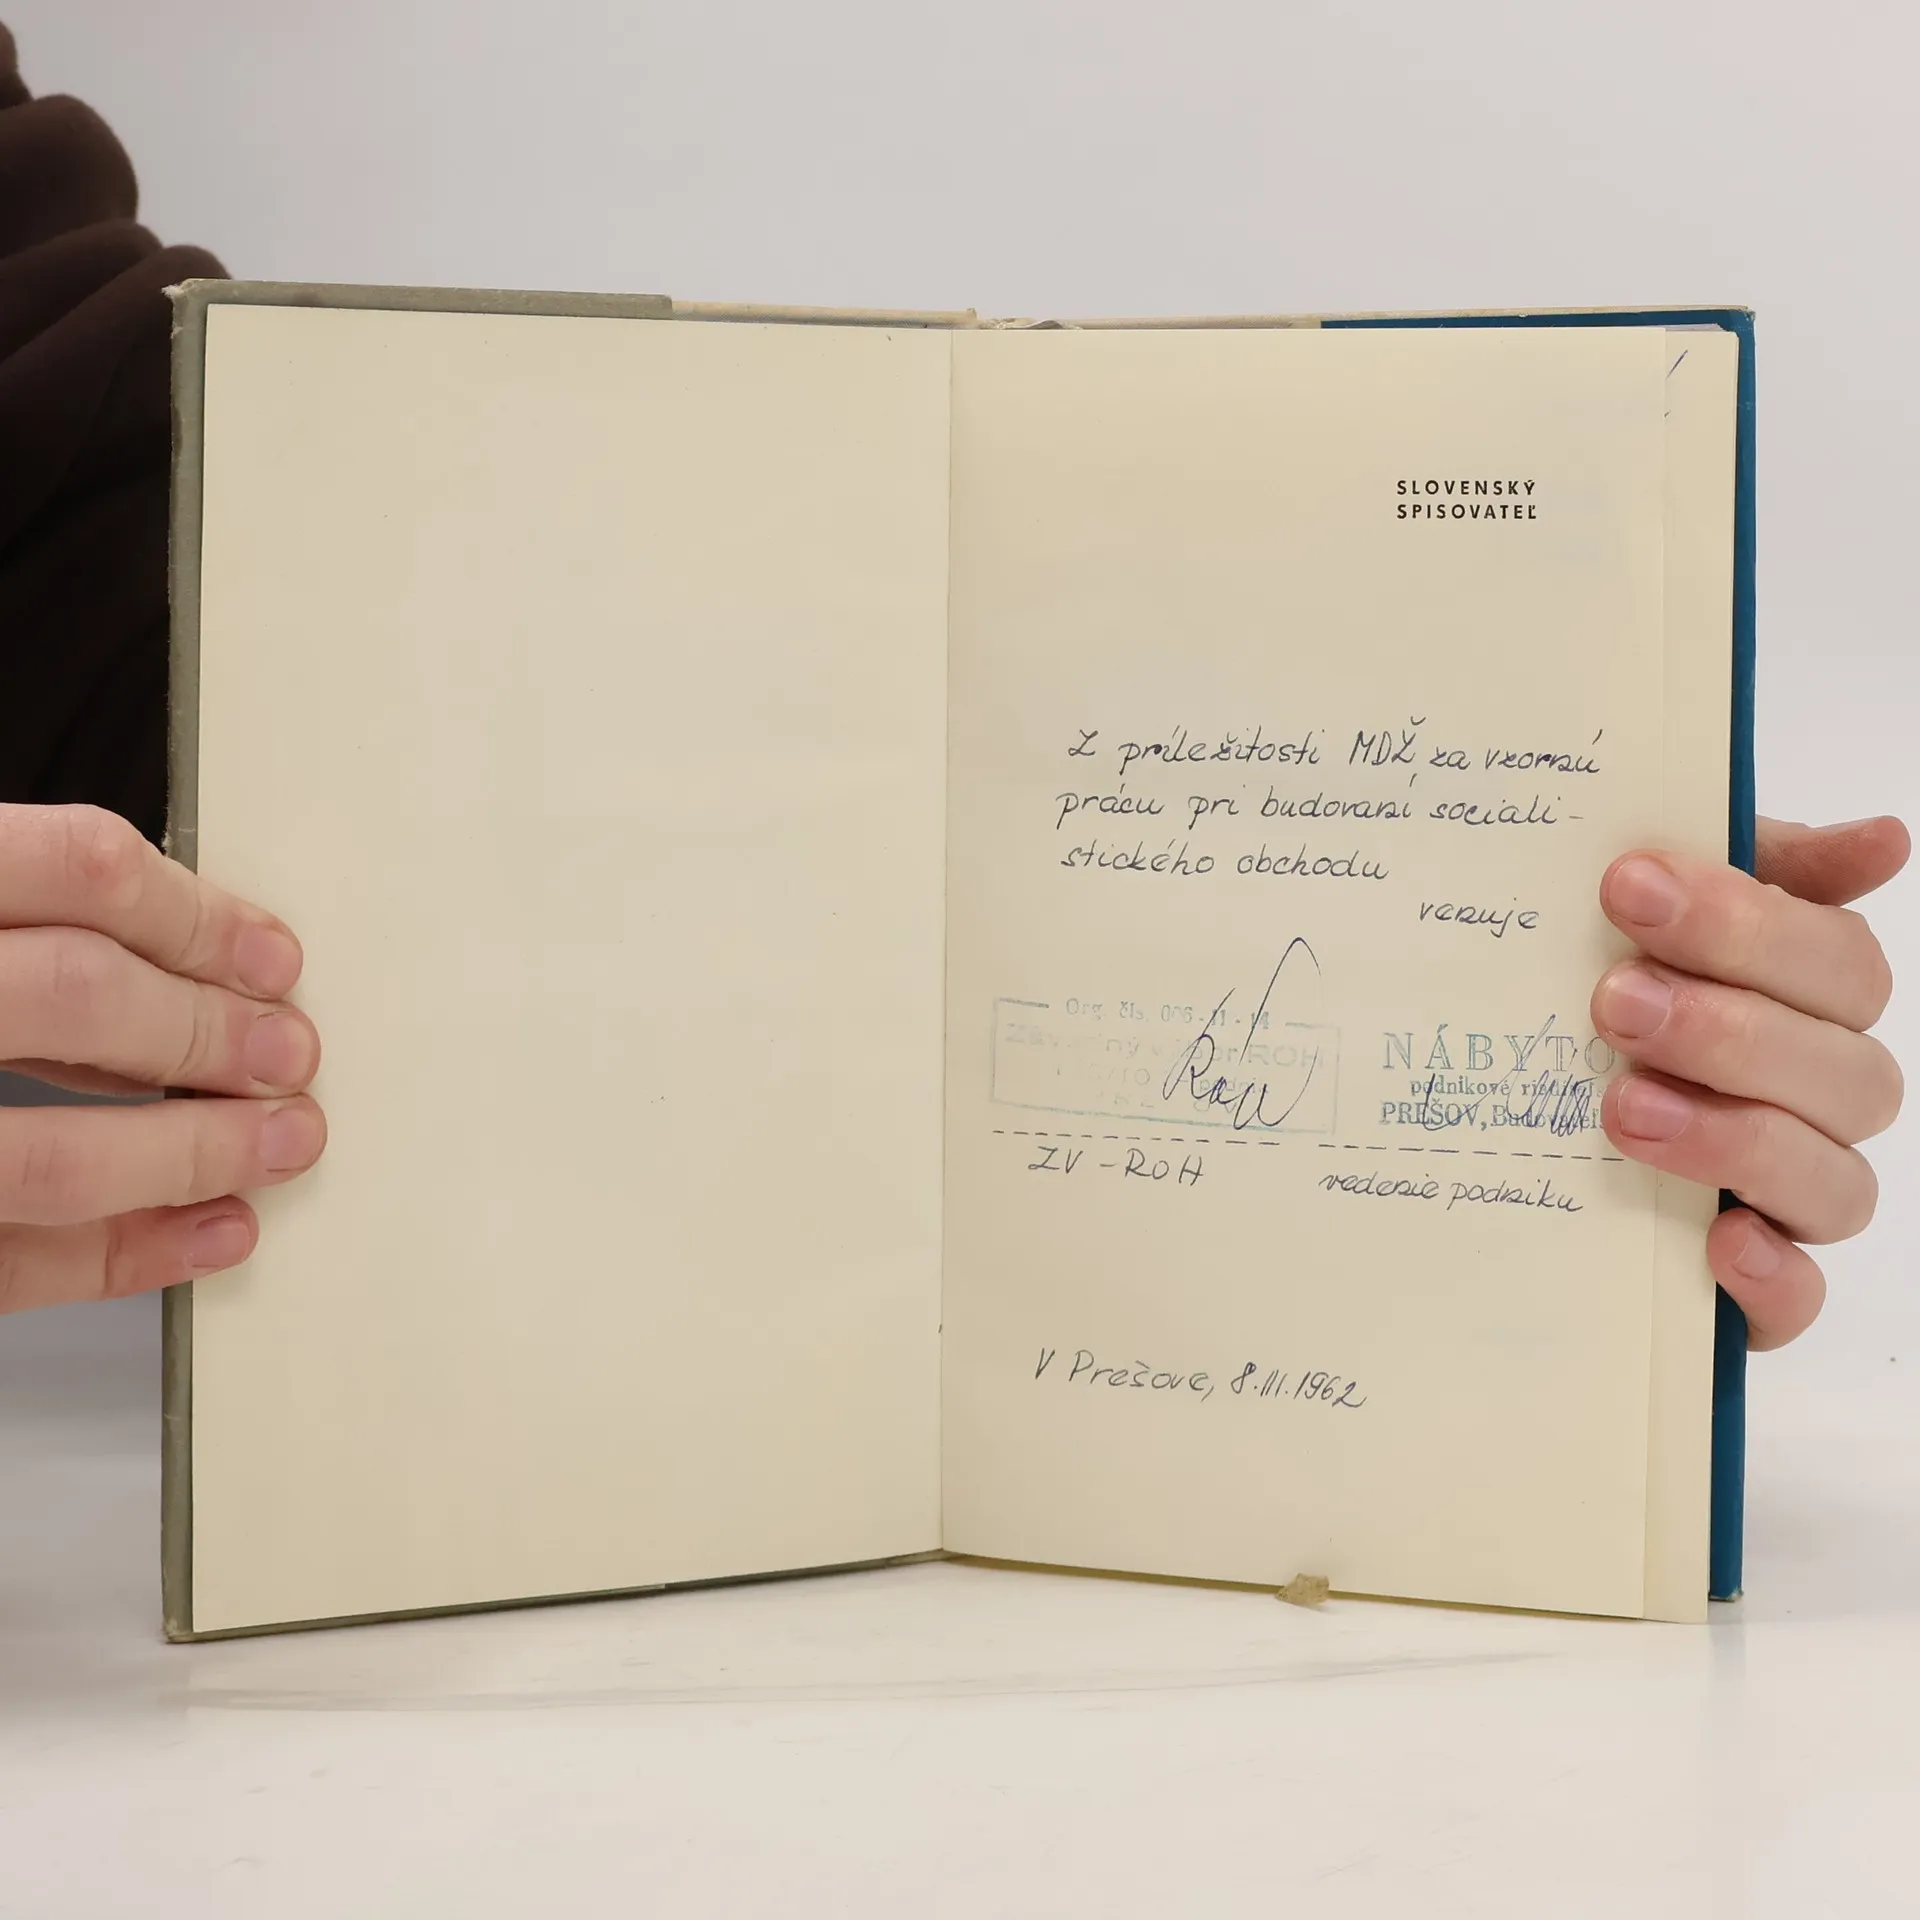 SLOVENSKÝ
SPISOVATEĽ
Z príležitosti MDŽ, za vzornú
prácu pri budovaní sociali-
stického obchodu
venuje
Org. čís. 006-11-14
Závodný výbor ROH
NÁBYTO
podnikové riaditeľs
PREŠOV, Budovateľs
ZV - ROH
vedenie podniku
V Prešove, 8.III.1962